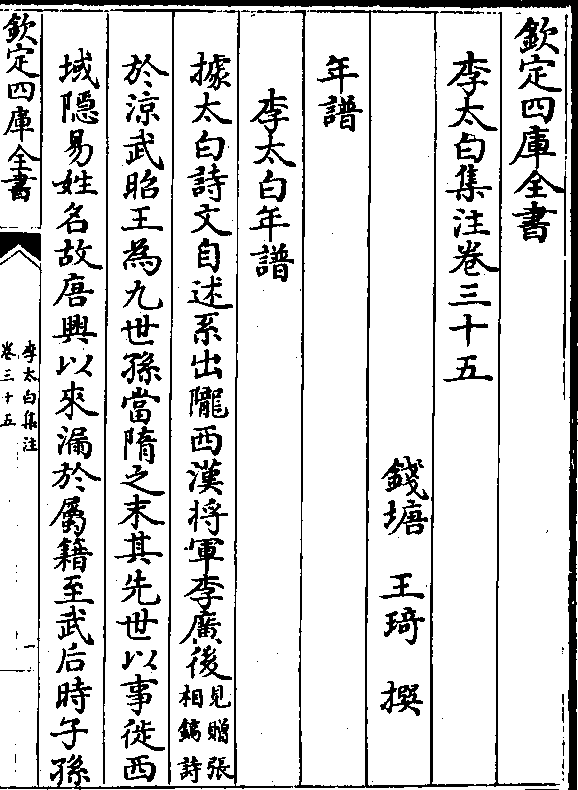 欽定四庫全書
李太白集注卷三十五
錢塘 王琦 撰
年譜
李太白年譜
據太白詩文自述系出隴西漢将軍李廣後見贈張相鎬詩
於涼武昭王為九世孫當隋之末其先世以事徙西
域隱易姓名故唐興以來漏於屬籍至武后時子孫
欽定四庫全書
李太白集注
卷三十五
一